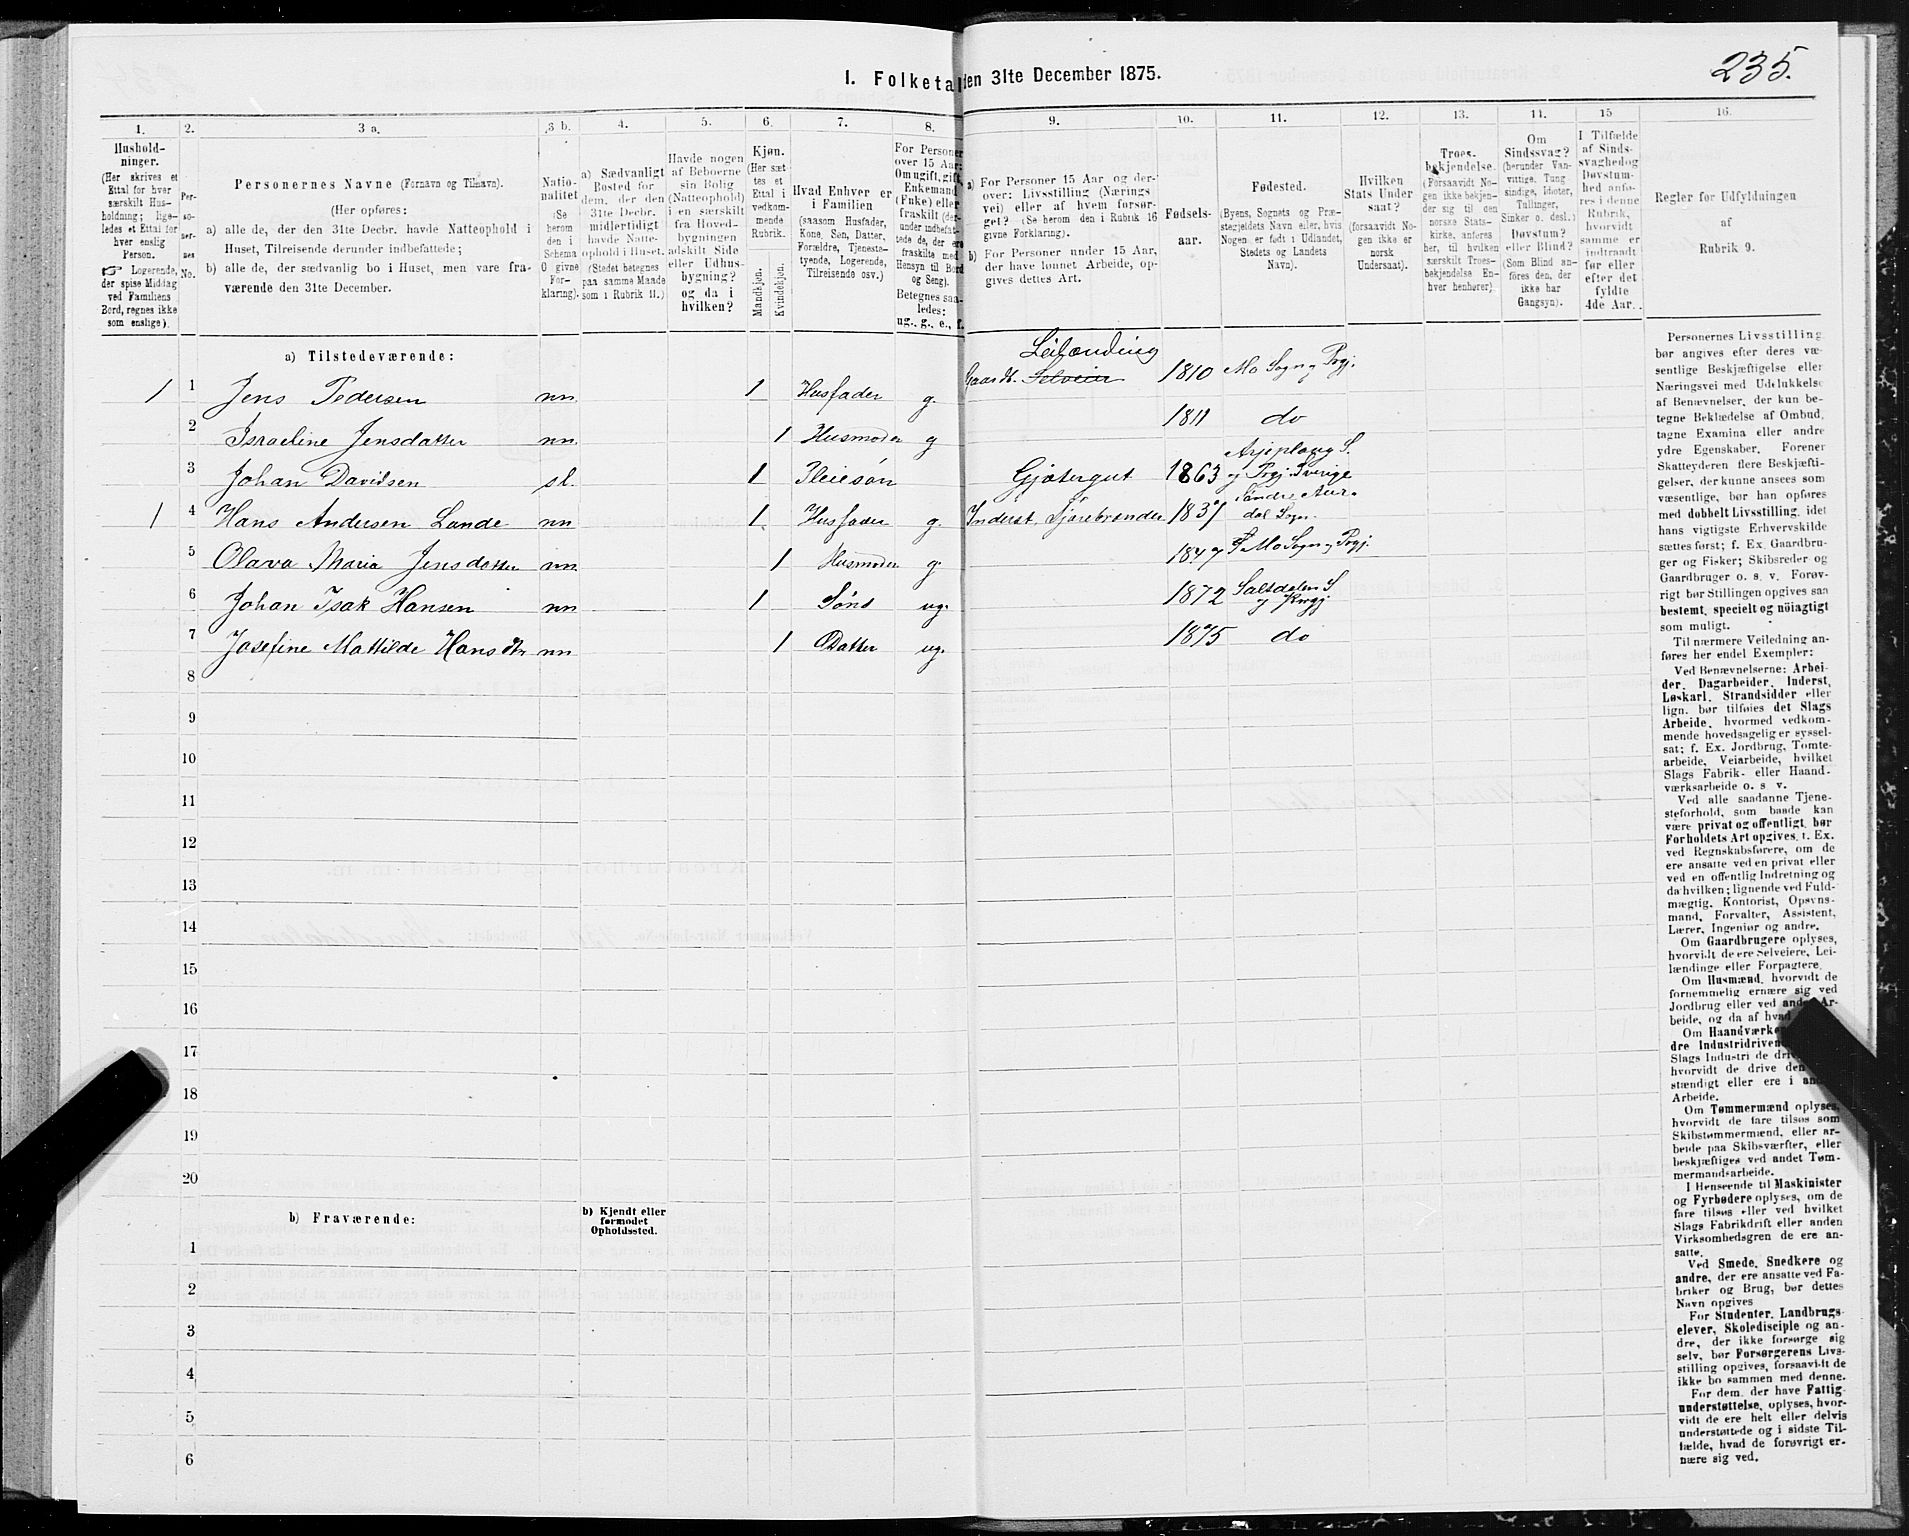 235.
I. Folketal
den 31te December 1875.
1. 2. 3 a. 3 b. 4. 5. 6. 7. 8. 9. 10. 11. 12. 13. 14. 15 16.
Hushold-
ninger.
(Her skrives et
Ettal for hver
særskilt Hus-
holdning; lige-
ledes et Ettal for
hver enslig
Person.
☞ Logerende,
der spise Middag
ved Familiens
Bord, regnes ikke
som enslige).
Per-
so-
ner-
nes
No.
Personernes Navne (Fornavn og Tilnavn).
(Her opføres:
a) alle de, der den 31te Decbr. havde Natteophold i
Huset, Tilreisende derunder indbefattede;
b) alle de, der sædvanlig bo i Huset, men vare fra-
værende den 31te December.
Natio-
nalitet
(Se
herom
den i
Schema
O givne
For-
klaring).
a) Sædvanligt
Bosted for
dem, der den
31te Decbr.
midlertidigt
havde Natte-
ophold i Huset.
(Stedet betegnes
paa samme Maade
som i Rubrik 11.)
Havde nogen
af Beboerne
sin Bolig
(Natteophold)
i en særskilt
fra Hoved-
bygningen
adskilt Side
eller Udhus-
bygning?
og da i
hvilken?
Kjøn.
(Her sæt-
tes et
Ettal i
vedkom-
mende
Rubrik.
Mandkjøn.
Kvindekjøn.
Hvad Enhver er
i Familien
(saasom Husfader,
Kone, Søn, Datter,
Forældre, Tjenest-
tyende, Logerende,
Tilreisende osv.)
For Personer
over 15 Aar:
Om ugift, gift,
Enkemand
(Enke) eller
fraskilt (der-
under indbefat-
tede de, der ere
fraskilte med
Hensyn til Bord
og Seng).
Betegnes saa-
ledes:
ug., g., e., f.
a) For Personer 15 Aar og der-
over: Livsstilling (Nærings
vei) eller af hvem forsør-
get? (Se herom den i Rubrik 16
givne Forklaring).
b) For Personer under 15 Aar,
der have lønnet Arbeide, op-
gives dettes Art.
Fødsels-
aar.
Fødested.
(Byens, Sognets og Præ-
stegjeldets Navn eller, hvis
Nogen er født i Udlandet,
Stedets og Landets
Navn).
Hvilken
Stats Under
saat?
(forsaavidt No-
gen ikke er
norsk
Undersaat).
Troes-
bekjendelse.
(Forsaavidt No-
gen ikke bekjen-
der sig til den
norske Stats-
kirke, anføres
her, til hvilken
særskilt Troes-
bekjendelse En-
hver henhører)
Om
Sindssvag?
(herunder Van-
vittige, Tung
sindige, Idioter,
Tullinger,
Sinker o. desl.)
Døvstum?
eller Blind?
(Som Blind an-
føres den, der
ikke har
Gangsyn).
I Tilfælde
af Sinds-
svaghed og
Døvstum-
hed anfø-
res i denne
Rubrik,
hvorvidt
samme er
indtraadt
før eller
efter det
fyldte
4de Aar.
Regler for Udfyldningen
af
Rubrik 9.
a) Tilstedeværende:
Leilænding
1 1 Jens Pedersen nn. 1 Husfader g. Gaardb. Selveier 1810 Mo Sogn og Prgj.
2 Israeline Jensdatter nn. 1 Husmoder g 1811 do
3 Johan Davidsen sl. 1 Pleiesøn Gjætergut 1863 Arjeplaug S. og Prgj. Sverige
1 4 Hans Andersen Lande nn 1 Husfader g. Inderst. Tjærebrænder 1837 Søndre Aurdal Sogn.
5 Olava Maria Jensdatter nn. 1 Husmoder g. 1847 Mo Sogn og Prgj.
6 Johan Isak Hansen nn 1 Sønd ug. 1872 Saltdalen S. og Prgj
7 Josefine Mattilde Hansdtr nn 1 Datter ug. 1875 do
8
9
10
11
12
13
14
15
16
17
18
19
20
b) Fraværende:
b) Kjendt eller
formodet
Opholdssted.
1
2
3
4
5
6
Personernes Livsstilling
bør angives efter deres væ-
sentlige Beskjæftigelse eller
Næringsvei med Udelukkelse
af Benævnelser, der kun be-
tegne Beklædelse af Ombud,
tagne Examina eller andre
ydre Egenskaber. Forener
Skatteyderen flere Beskjæfti-
gelser, der kunne ansees som
væsentlige, bør han opføres
med dobbelt Livsstilling, idet
hans vigtigste Erhvervskilde
sættes først; f. Ex. Gaardbru-
ger og Fisker; Skibsreder og
Gaardbruger o. s. v. Forøv-
rigt bør Stillingen opgives saa
bestemt, specielt og nöiagtigt
som muligt.
Til nærmere Veiledning an-
føres her endel Exempler:
Ved Benævnelserne: Arbei-
der, Dagarbeider, Inderst,
Løskarl, Strandsidder eller
lign. bør tilføies det Slags
Arbeide, hvormed vedkom-
mende hovedsagelig er syssel-
sat; f. Ex. Jordbrug, Tomte-
arbeide, Veiarbeide, hvilket
Slags Fabrik- eller Haand-
værksarbeide o. s v.
Ved alle saadanne Tjene-
steforhold, som baade kan
være privat og offentligt, bør
Forholdets Art opgives, t. Ex.
ved Regnskabsførere, om de
ere ansatte ved en privat eller
ved en offentlig Indretning og
da hvilken; lignende ved Fuld-
mægtig, Kontorist, Opsyns-
mand, Forvalter, Assistent,
Lærer, Ingeniør og andre.
Om Gaardbrugere oplyses,
hvorvidt de ere Selveiere, Lei-
lændinge eller Forpagtere.
Om Husmænd, hvorvidt de
fornemmelig ernære sig ved
Jordbrug eller ved andet Ar-
beide, og da af hvad
Om Haandværke
dre Industridriven
Slags Industri de dri
hvorvidt de drive den
stændigt eller ere i an
Arbeide.
Om Tømmermænd oplyses,
hvorvidt de fare tilsøs som
Skibstømmermænd, eller ar-
beide paa Skibsværfter, eller
beskjæftiges ved andet Tøm-
mermandsarbeide.
I Henseende til Maskinister
og Fyrbødere oplyses, om de
fare tilsøs eller ved hvilket
Slags Fabrikdrift eller anden
Virksomhedsgren de ere an-
satte.
Ved Smede, Snedkere og
andre, der ere ansatte ved Fa-
briker og Brug, bør dettes
Navn opgives
For Studenter, Landbrugs-
elever, Skoledisciple og an-
dre, der ikke forsørge sig
selv, bør Forsørgerens Livs-
stilling opgives, forsaavidt de
ikke bo sammen med denne.
For dem, der have Fattig-
understøttelse, oplyses, hvor-
vidt de ere helt eller delvis
understøttede og i sidste Til-
fælde, hvad de forøvrigt er-
nære sig ved.